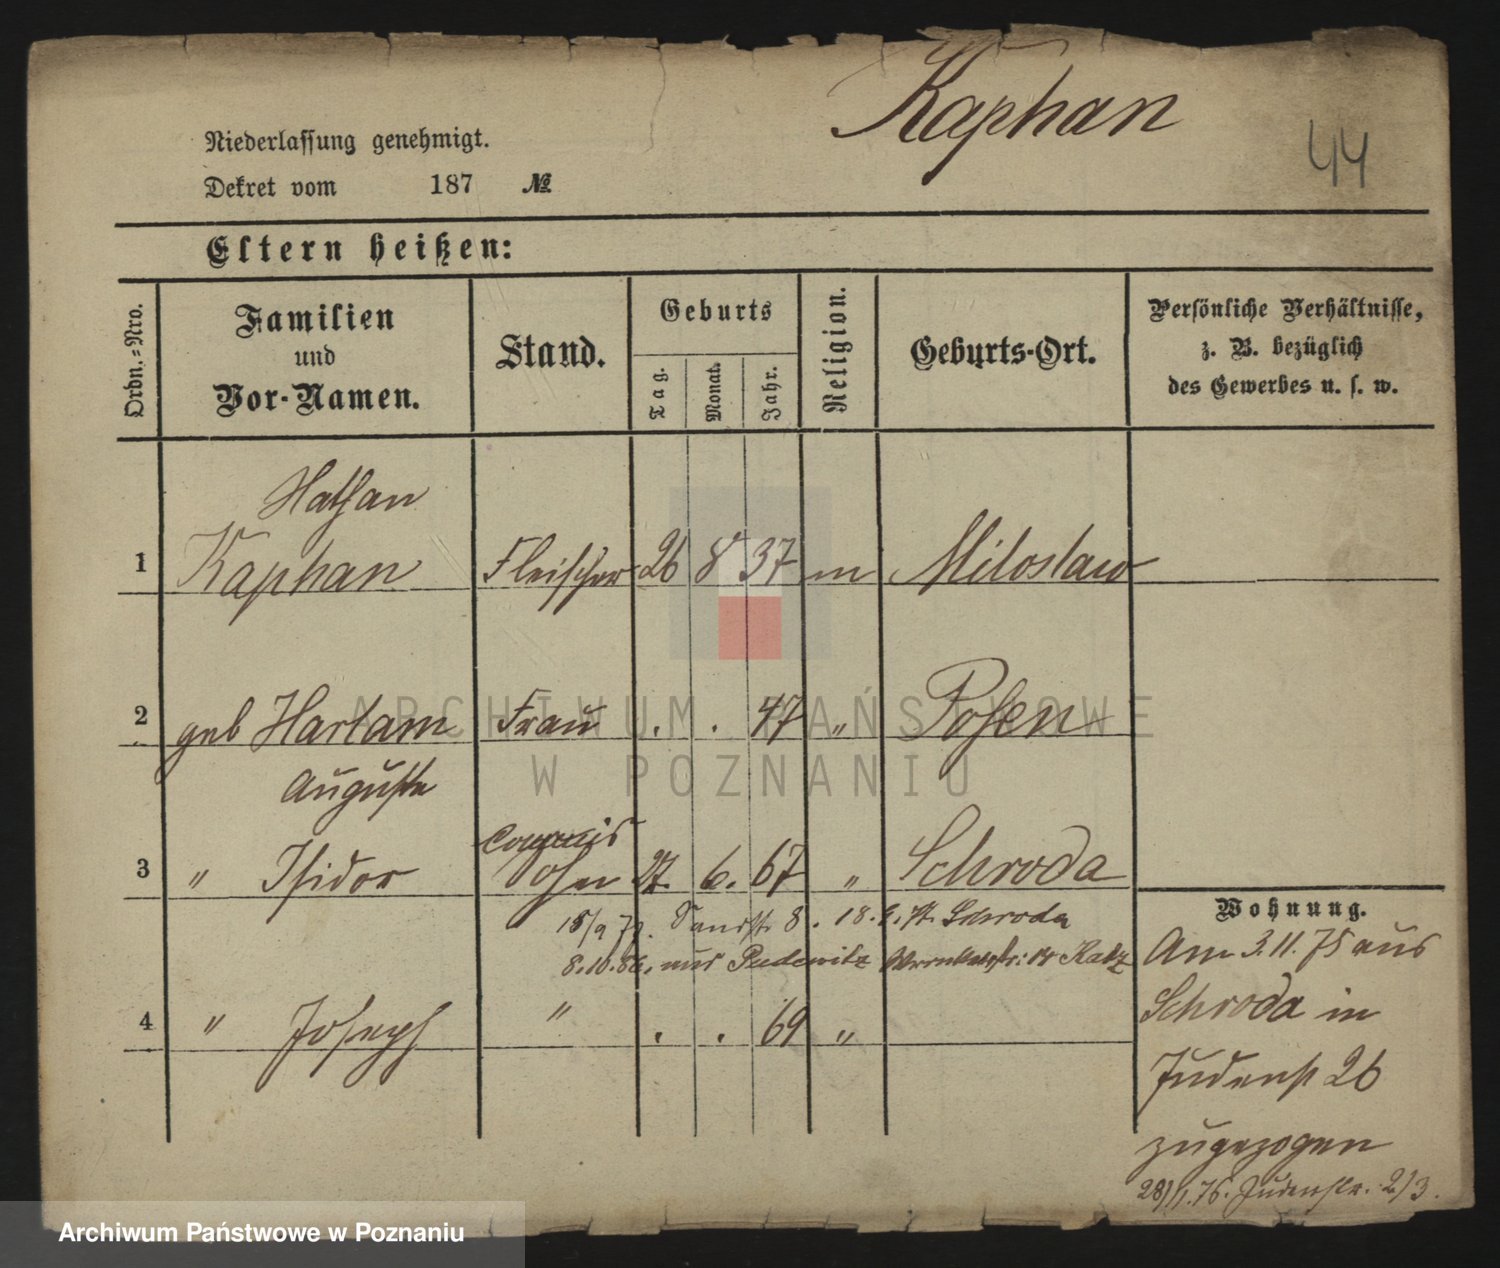 Kaphan
44
Niederlassung genehmigt.
Dekret vom 187 №
Eltern heißen:
Ordn.=Nro.
Familien
und
Vor-Namen.
Stand.
Geburts
Tag.
Monat.
Jahr.
Religion.
Geburts-Ort.
Persönliche Verhältnisse,
z. B. bezüglich
des Gewerbes u. s. w.
Nathan
1 Kaphan Fleischer 26 8 37 m Miloslaw
2 geb Hartam Frau . . 47 " Posen
Auguste
Commis
3 " Isidor Sohn 27. 6. 67 " Schroda
18/9 79. Sandstr 8. 18. Schroda
8.10.86. aus Pudewitz Katz
4 " Joseph " . . 69 "
Wohnung.
Am 3.11.75 aus
Schroda in
Judenst 26
zugezogen
28/11.76. Judenstr. 2/3.
ARCHIWUM PAŃSTWOWE
W POZNANIU
Archiwum Państwowe w Poznaniu